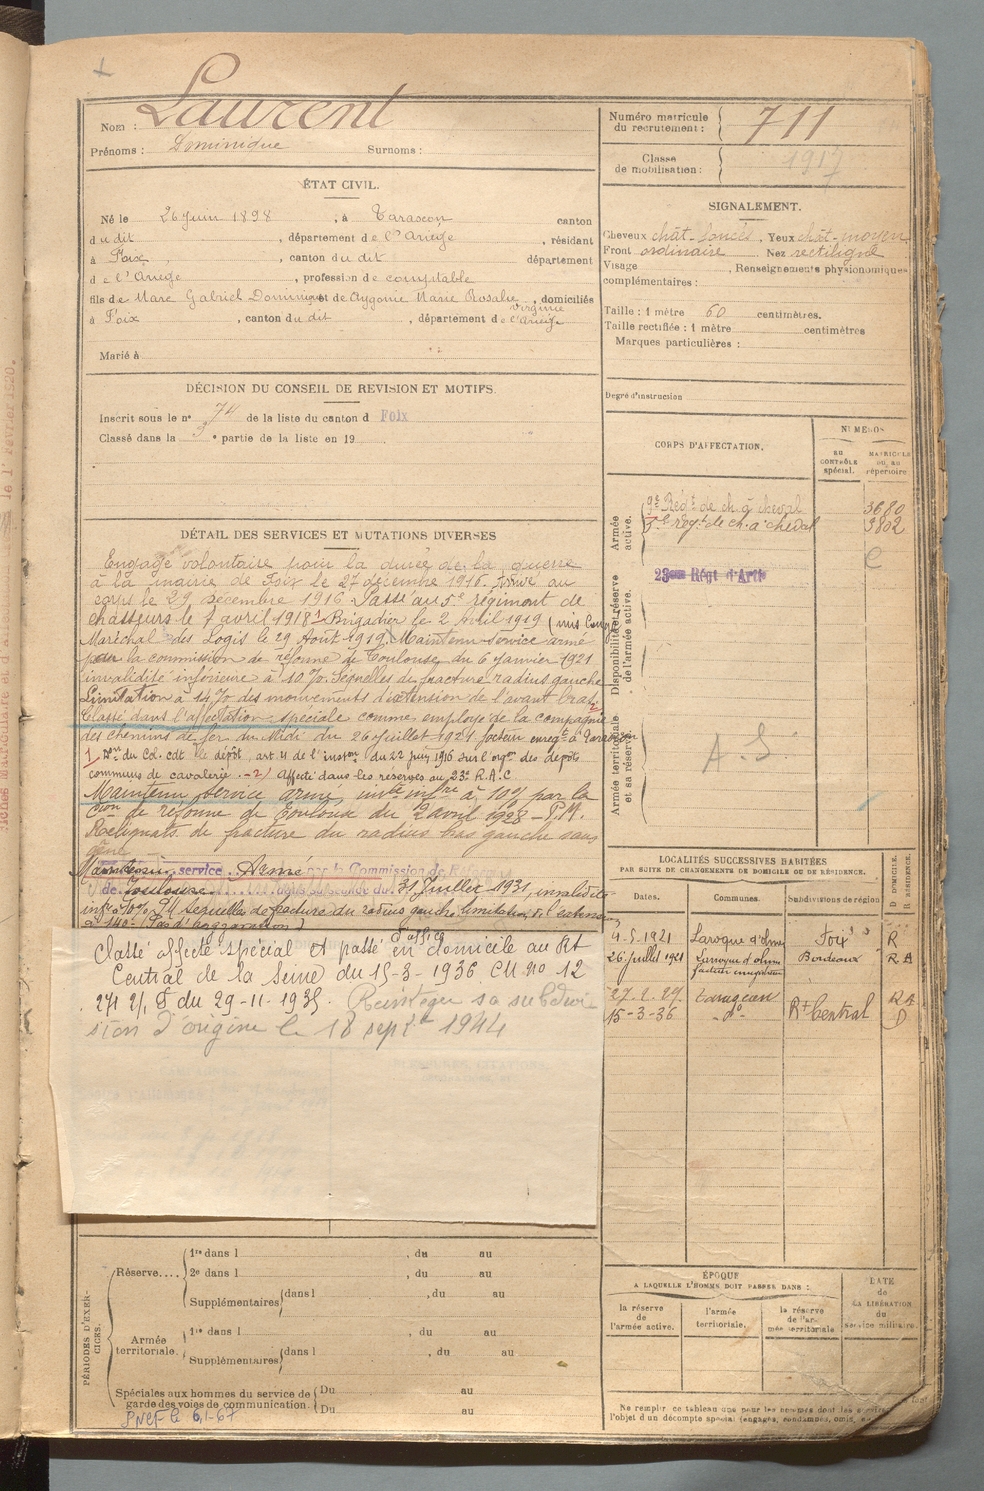 Nom : Laurent
Prénoms : Dominique Surnoms :
Numéro matricule du recrutement : 711
Classe de mobilisation : 1917
ÉTAT CIVIL.
Né le 26 Juin 1898, à Tarascon canton
du dit, département de l'Ariège, résidant
à Foix, canton du dit département
de l'Ariège, profession de comptable
fils de Marc Gabriel Dominique et de Aygonie Marie Rosalie Virginie, domiciliés
à Foix, canton du dit, département de l'Ariège
Marié à
SIGNALEMENT.
Cheveux chât-foncés, Yeux chât-moyen
Front ordinaire Nez rectiligne
Visage , Renseignements physionomiques
complémentaires :
Taille : 1 mètre 60 centimètres.
Taille rectifiée : 1 mètre centimètres
Marques particulières :
Degré d'instruction
DÉCISION DU CONSEIL DE REVISION ET MOTIFS.
Inscrit sous le n° 74 de la liste du canton d Foix
Classé dans la 3e partie de la liste en 19
CORPS D'AFFECTATION.
NUMÉROS
AU CONTRÔLE spécial.
MATRICULE OU AU répertoire
Armée active.
9e Régt de ch. à cheval 3680
5e régt de ch. à cheval 3802
C
Disponibilité et réserve de l'armée active.
23eme Régt d'Artie
Armée territoriale et sa réserve.
A.S.
DÉTAIL DES SERVICES ET MUTATIONS DIVERSES
Engagé volontaire pour la durée de la guerre
à la mairie de Foix le 27 décembre 1916. Arrivé au
corps le 29 Décembre 1916. Passé au 5e régiment de
chasseurs le 7 avril 1918 1 Brigadier le 2 Avril 1919
Maréchal des Logis le 29 Août 1919. Maintenu service armé
par la commission de réforme de Toulouse du 6 janvier 1921
invalidité inférieure à 10 %. Séquelles de fracture radius gauche
Limitation à 14% des mouvements d'extension de l'avant bras 2
Classé dans l'affectation spéciale comme employé de la compagnie
des chemins de fer du Midi du 26 Juillet 1921 facteur enregt à
1, Don du Col. cdt le dépôt, art 4 de l'inston du 22 juin 1916 sur l'orgon des dépôts
communs de cavalerie. - 2/ Affecté dans les réserves au 23e R.A.C
Maintenu service armé, invte infre à 10% par la
Cion de réforme de Toulouse du 2 avril 1928 - P.M.
Reliquats de fracture du radius bras gauche sans
gêne
Maintenu service Armé par la Commission de Réforme
de Toulouse du 31 Juillet 1931, invalidité
infre à 10% P.M. séquelles de fracture du radius gauche limitation de l'extension
à 140° (Pas d'aggravation)
Classé affecté spécial et passé d'office en domicile au Rt
Central de la Seine du 15-3-1936 CM no 12
271 2/1 E du 29-11-1935. Réintegre sa subdivi
sion d'origine le 18 septbre 1944
LOCALITÉS SUCCESSIVES HABITÉES
PAR SUITE DE CHANGEMENTS DE DOMICILE OU DE RÉSIDENCE.
Dates. Communes. Subdivisions de région D. DOMICILE. R. RÉSIDENCE.
4-5-1921 Laroque d'olmes Foix R
26 Juillet 1921 Laroque d'olmes Bordeaux R A
27.2.27
15-3-36 -do- Rt Central D
PÉRIODES D'EXERCICES.
Réserve.... 1re dans l , du au
2e dans l , du au
Supplémentaires dans l , du au
Armée territoriale. 1re dans l , du au
Supplémentaires dans l , du au
Spéciales aux hommes du service de garde des voies de communication. Du au
Du au
ÉPOQUE
A LAQUELLE L'HOMME DOIT PASSER DANS :
la réserve de l'armée active. l'armée territoriale. la réserve de l'armée territoriale
DATE de LA LIBÉRATION du service militaire.
Ne remplir ce tableau que pour les hommes dont les
l'objet d'un décompte spécial (engagés, condamnés, omis,